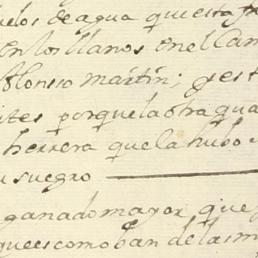 uelos de agua que esta
en los llanos en el Cam
Alonsso martin; y est
tes porque la otra qua
herrera que la hubo
su suegro
ganado mayor que
que es como ban de las m